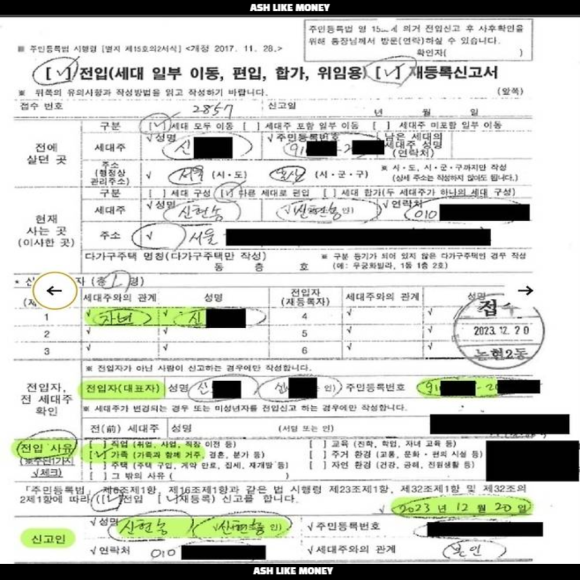 ASH LIKE MONEY
주민등록법 영 15 의거 전입신고 후 사후확인을
위해 통장님께서 방문(연락)하실 수 있습니다.
확인자( )
※ 주민등록법 시행령 [별지 제15호의2서식] <개정 2017. 11. 28.>
[√] 전입(세대 일부 이동, 편입, 합가, 위임용) [√] 재등록신고서
※ 뒤쪽의 유의사항과 작성방법을 읽고 작성하기 바랍니다. (앞쪽)
접수 번호 2857 신고일 년 월 일
전에
살던 곳
구분 [√] 세대 모두 이동 [ ] 세대주 포함 일부 이동 [ ] 세대주 미포함 일부 이동
세대주 √성명 신 √주민등록번호 91 - 2 남은 세대의
세대주 성명
(연락처)
주소
(행정상
관리주소) √ 서울 (시·도) (시·군·구) ※ 시·도, 시·군·구까지만 작성
(상세 주소는 작성하지 않아도 됩니다.)
현재
사는 곳
(이사한 곳)
구분 [ ] 세대 구성 [√] 다른 세대로 편입 [ ] 세대 합가(두 세대주가 하나의 세대 구성)
세대주 √성명 신현승 √ 신현승 인) √연락처 010
주소 √ 서울
다가구주택 명칭(다가구주택만 작성)
동 층 호
※ 구분 등기가 되어 있지 않은 다가구주택인 경우 작성
(예: 무궁화빌라, 1동 1층 2호)
세대주와의 관계 성명 전입자
(재등록자) 세대주와의 관계 성명
1 √ 자녀 √ 신 4 √ √
2 √ √ 5 √
3 √ √ 6 √
접수
2023. 12. 20
논현2동
※ 전입자가 아닌 사람이 신고하는 경우에만 작성합니다.
전입자,
전 세대주
확인
전입자(대표자) 성명 신 인) 주민등록번호 91 - 2
※ 세대주가 변경되는 경우 또는 미성년자를 전입신고 하는 경우에만 작성합니다.
전(前) 세대주 성명 (서명 또는 인)
전입 사유
√체크)
[ ] 직업 (취업, 사업, 직장 이전 등) [ ] 교육 (진학, 학업, 자녀 교육 등)
[√] 가족 (가족과 함께 거주, 결혼, 분가 등) [ ] 주거 환경 (교통, 문화·편의 시설 등)
[ ] 주택 (주택 구입, 계약 만료, 집세, 재개발 등) [ ] 자연 환경 (건강, 공해, 전원생활 등)
[ ] 그 밖의 사유 ( )
「주민등록법 제16조제1항과 같은 법 시행령 제23조제1항, 제32조제1항 및 제32조의
2제1항에 따라 전입 재등록) 신고를 합니다.
2023 년 12 월 20 일
신고인
√성명 신현승 / 신현승 인) √주민등록번호
√연락처 010 √세대주와의 관계 본인
ASH LIKE MONEY